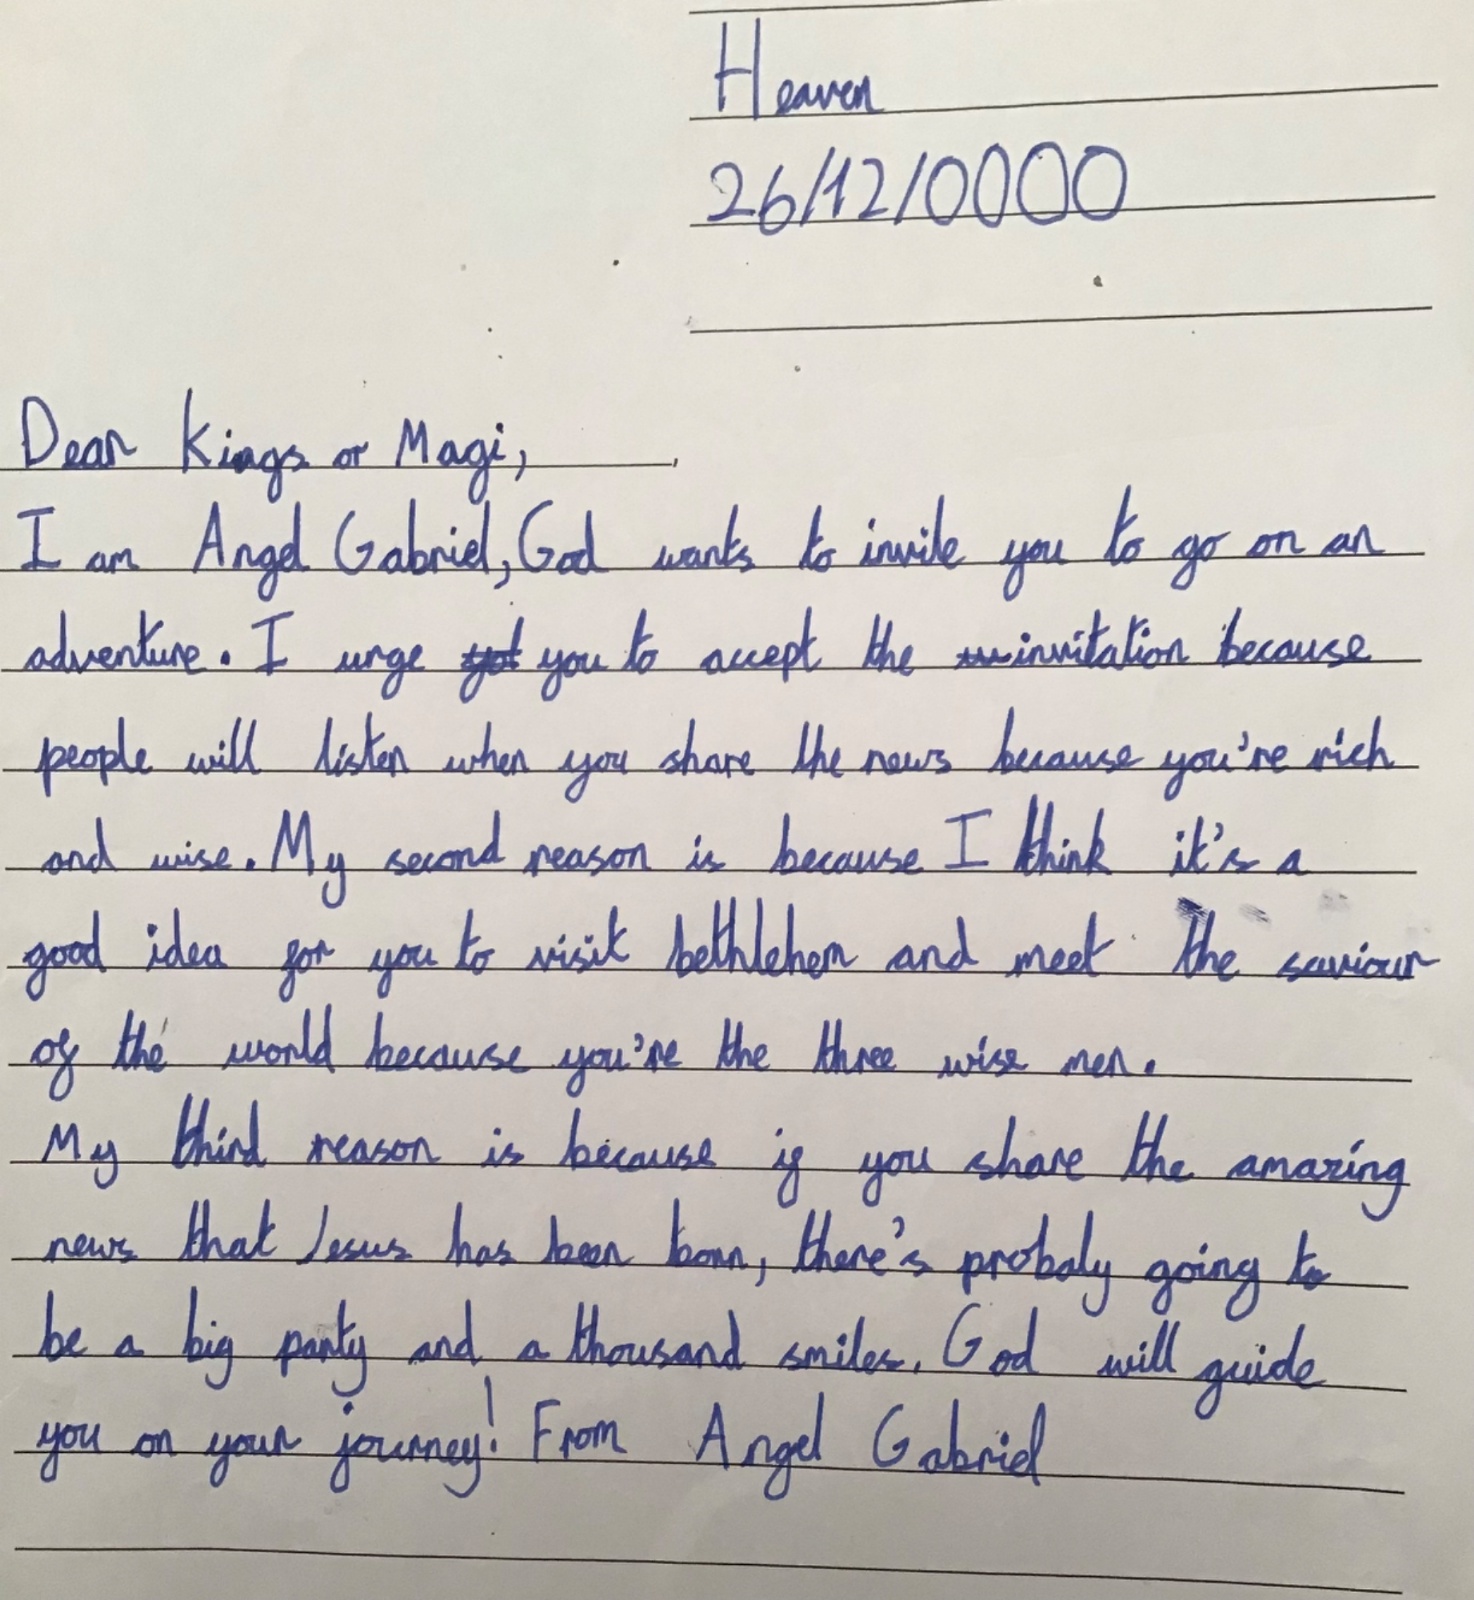 Heaven
26/12/0000
Dear Kings or Magi,
I am Angel Gabriel, God wants to invite you to go on an
adventure. I urge you to accept the invitation because
people will listen when you share the news because you're rich
and wise. My second reason is because I think it's a
good idea for you to visit bethlehem and meet the saviour
of the world because you're the three wise men.
My third reason is because if you share the amazing
news that Jesus has been born, there's probaly going to
be a big party and a thousand smiles. God will guide
you on your journey! From Angel Gabriel